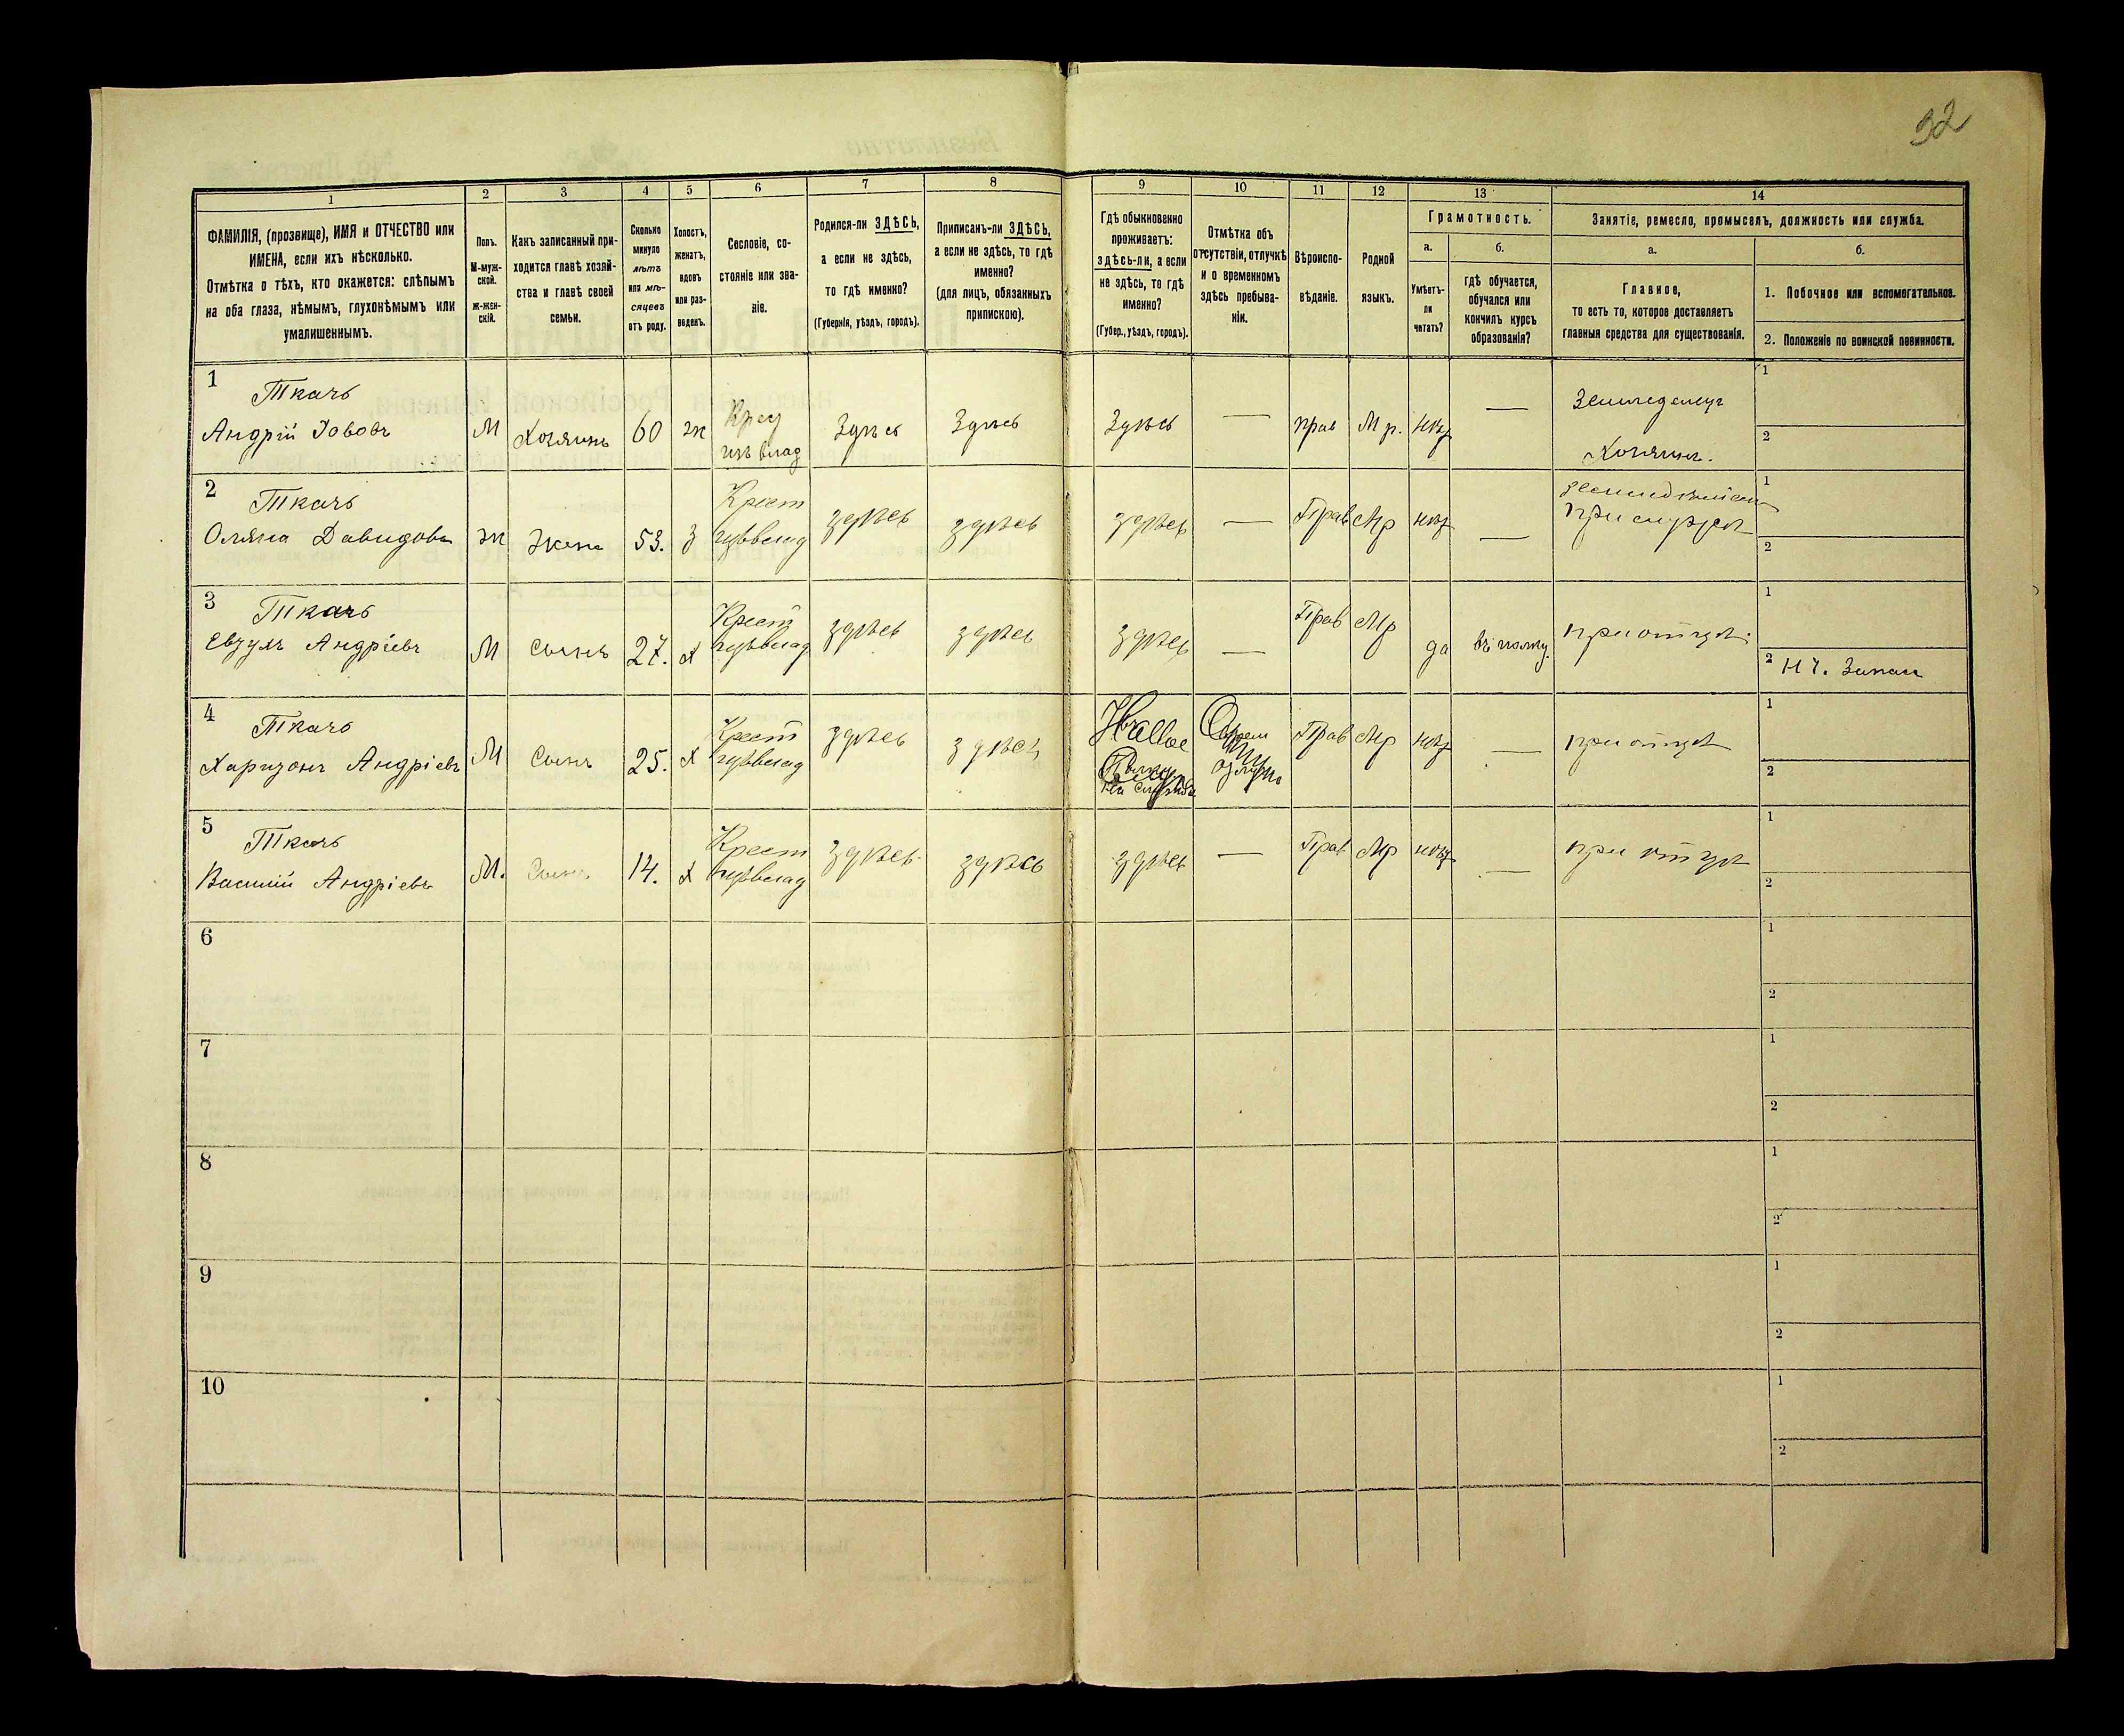 32
1
2
3
4
5
6
7
8
9
10
11
12
13
14
ФАМИЛІЯ, (прозвище), ИМЯ и ОТЧЕСТВО или
ИМЕНА, если ихъ нѣсколько.
Отмѣтка о тѣхъ, кто окажется: слѣпымъ
на оба глаза, нѣмымъ, глухонѣмымъ или
умалишеннымъ.
Полъ.
М-муж-
ской.
ж-жен-
скій.
Какъ записанный при-
ходится главѣ хозяй-
ства и главѣ своей
семьи.
Сколько
минуло
лѣтъ
или мѣ-
сяцевъ
отъ роду.
Холостъ,
женатъ,
вдовъ
или раз-
веденъ.
Сословіе, со-
стояніе или зва-
ніе.
Родился-ли ЗДѢСЬ,
а если не здѣсь,
то гдѣ именно?
(Губернія, уѣздъ, городъ).
Приписанъ-ли ЗДѢСЬ,
а если не здѣсь, то гдѣ
именно?
(для лицъ, обязанныхъ
припискою).
Гдѣ обыкновенно
проживаетъ:
здѣсь-ли, а если
не здѣсь, то гдѣ
именно?
(Губер., уѣздъ, городъ).
Отмѣтка объ
отсутствіи, отлучкѣ
и о временномъ
здѣсь пребыва-
ніи.
Вѣроиспо-
вѣданіе.
Родной
языкъ.
Грамотность.
а.
Умѣетъ-
ли
читать?
б.
гдѣ обучается,
обучался или
кончилъ курсъ
образованія?
Занятіе, ремесло, промыселъ, должность или служба.
а.
Главное,
то есть то, которое доставляетъ
главныя средства для существованія.
б.
1. Побочное или вспомогательное.
2. Положеніе по воинской повинности.
1
Ткачъ
Андрій Іововъ
М
Хозяинъ
60
ж
Крес
изъ влад
Здѣсь
Здѣсь
Здѣсь
—
прав
Мр.
нѣт
—
Земледелец
Хозяинъ.
1
2
2
Ткачъ
Оляна Давидова
ж
Жена
53.
З
Крест
изъ влад
здѣсь
здѣсь
здѣсь
—
Прав
Мр
нѣт
—
при мужѣ
1
2
3
Ткачъ
Андріевъ
М
Сынъ
27.
Х
Крест
изъ влад
здѣсь
здѣсь
здѣсь
—
Прав
Мр
да
въ полку.
при отцѣ.
1
2 Н Ч. Запаса
4
Ткачъ
Харитонъ Андріевъ
М
Сынъ
25.
Х
Крест
изъ влад
здѣсь
здѣсь
на службѣ
Прав
Мр
нѣт
—
при отцѣ
1
2
5
Ткачъ
Василій Андріевъ
М.
Сынъ
14.
Х
Крест
изъ влад
здѣсь
здѣсь
здѣсь
—
Прав
Мр
нѣт
—
при отцѣ
1
2
6
1
2
7
1
2
8
1
2
9
1
2
10
1
2